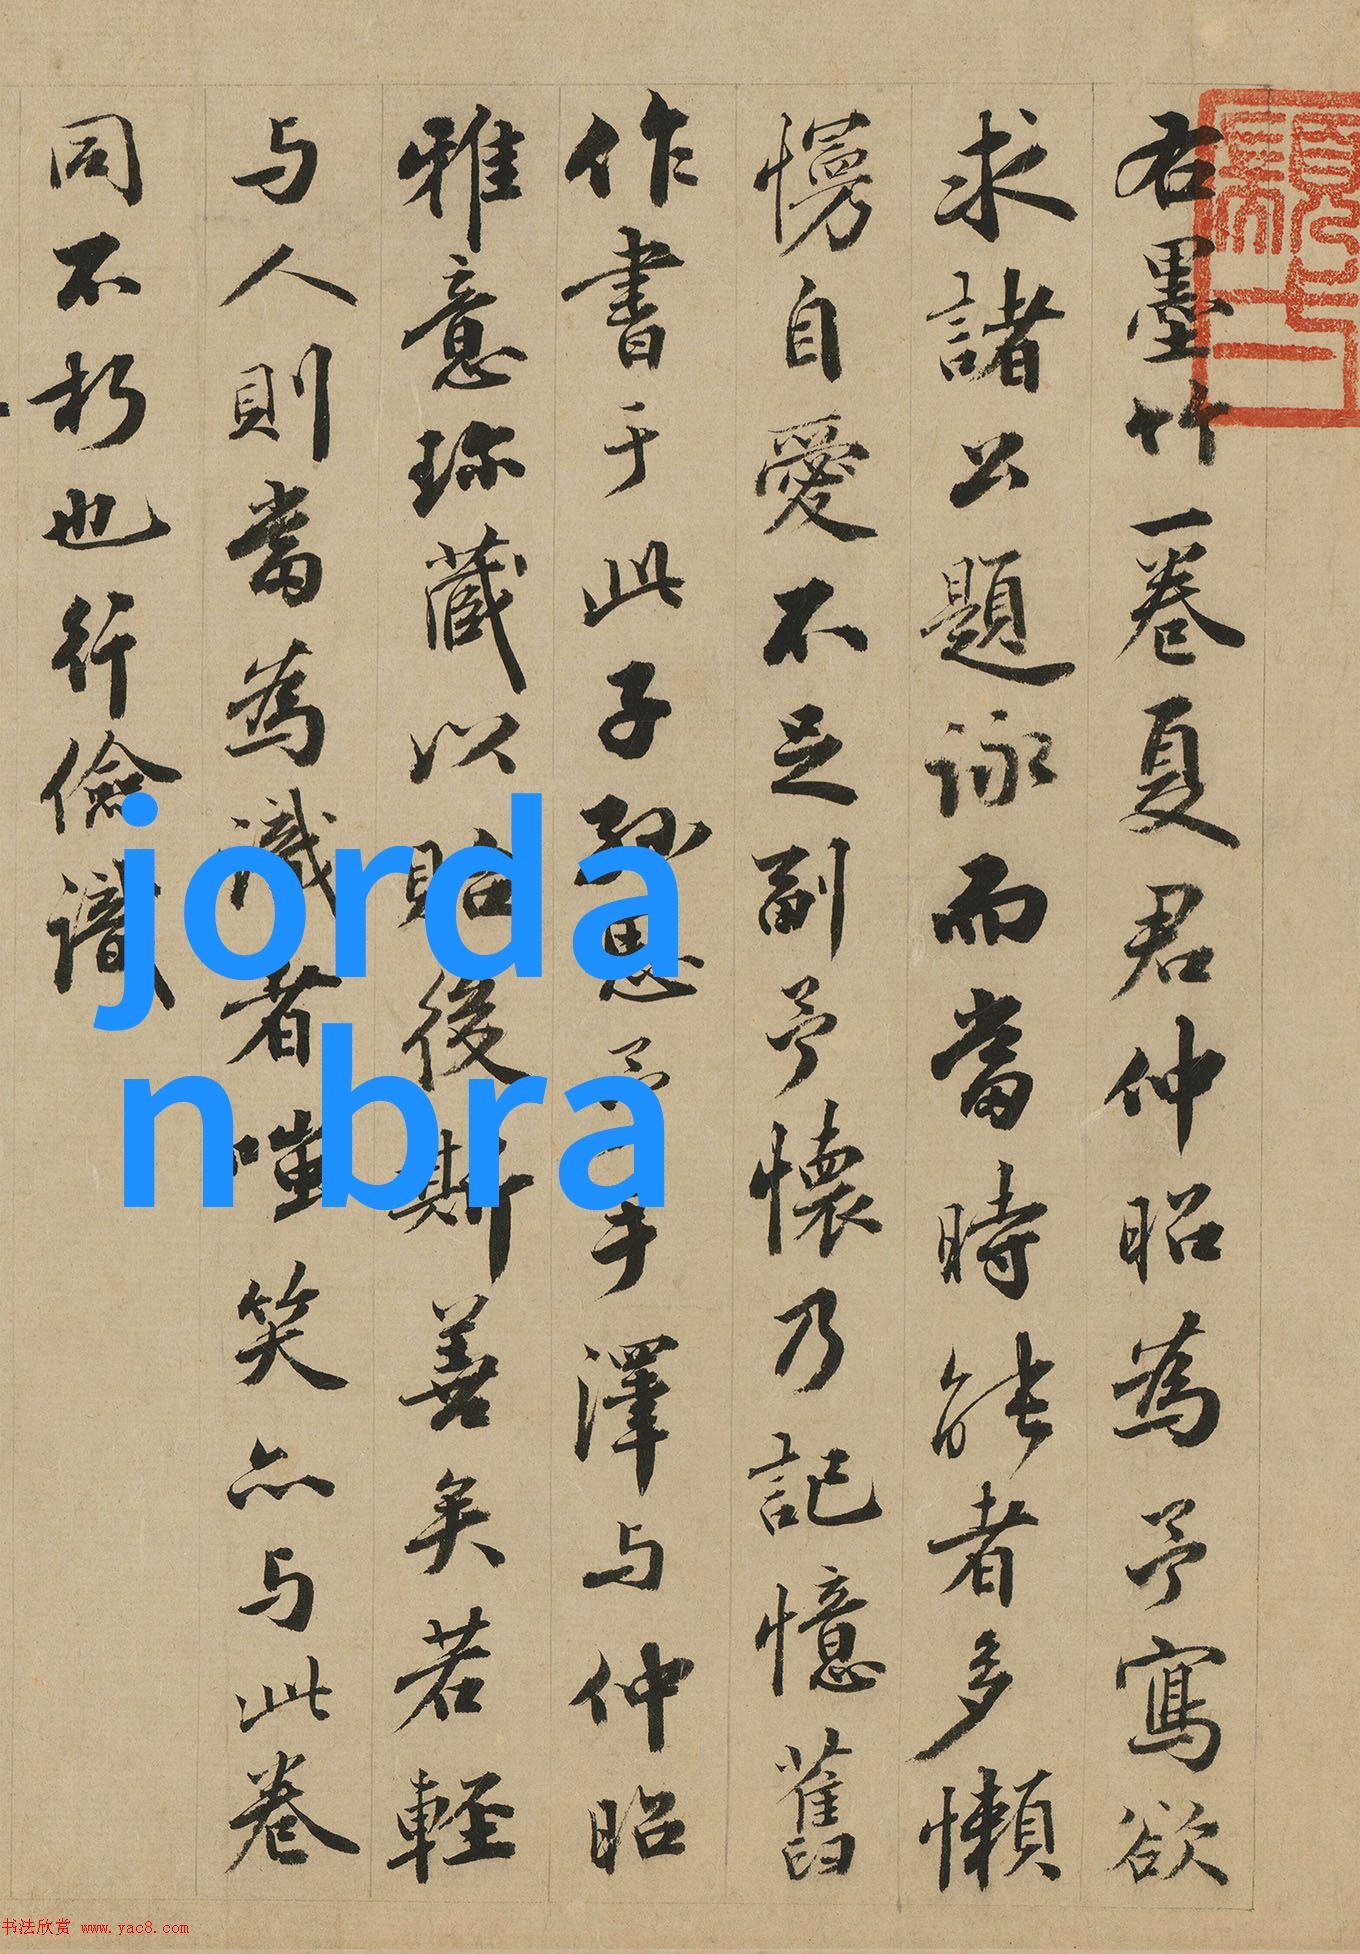 右墨竹一卷夏君仲昭為予寫欲
求諸公題詠而當時能者多懶
慢自愛不足副予懷乃記憶舊
作書于此子孫思予手澤与仲昭
雅意珎藏以貽後斯善矣若輕
与人則當為識者嗤笑亦与此卷
同不朽也行儉識
jorda
n bra
书法欣赏 www.yac8.com